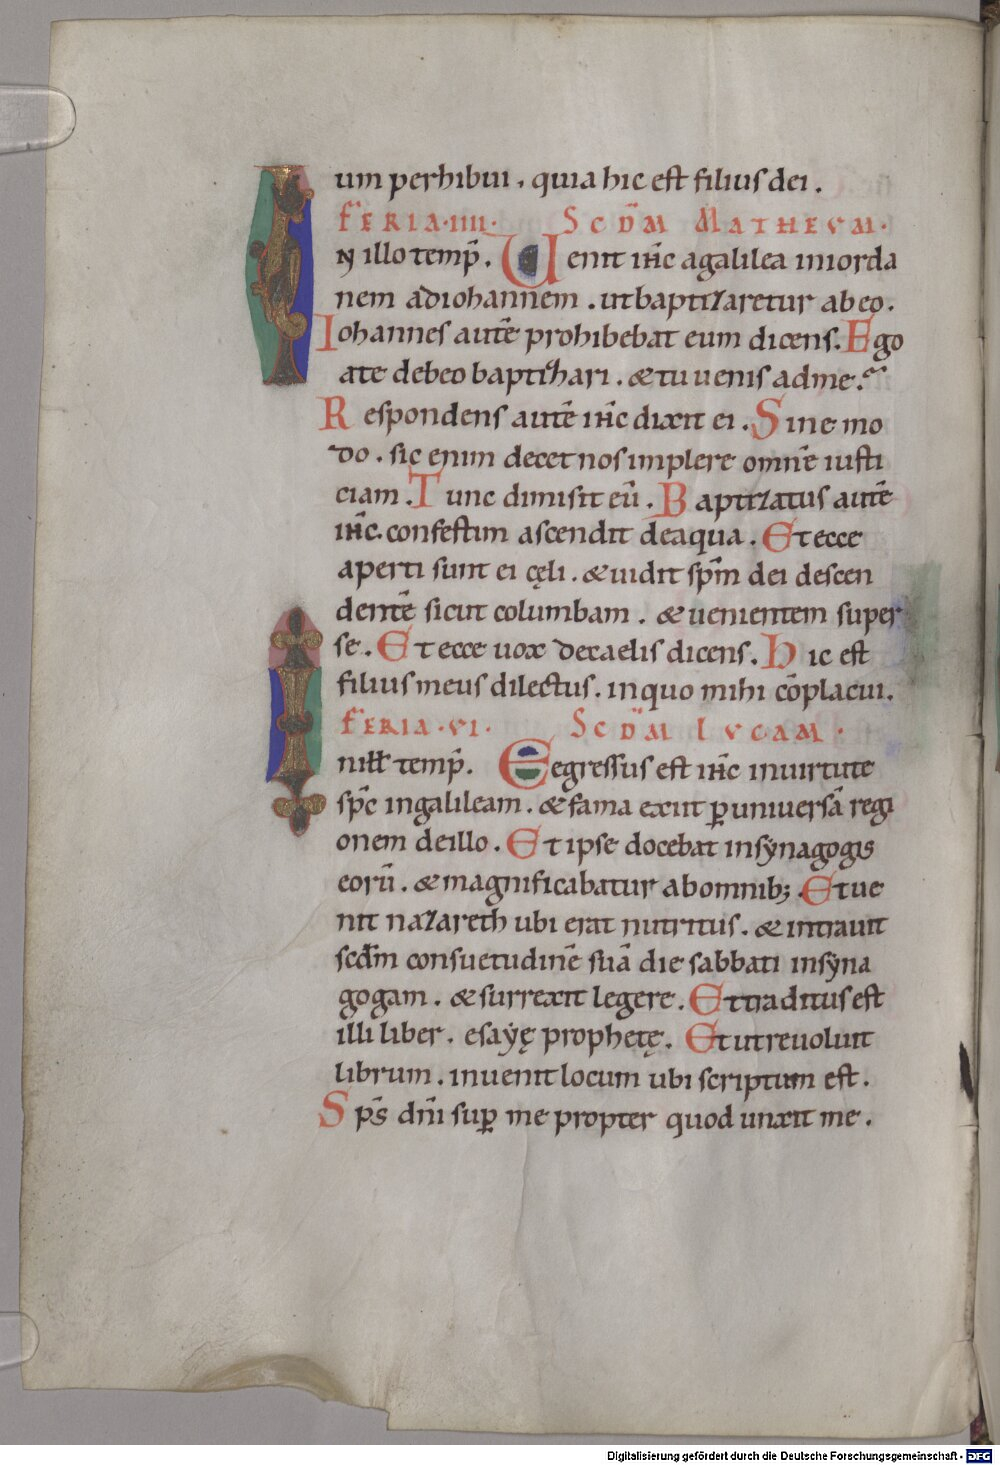 um perhibui . quia hic est filius dei .
FERIA · IIII · SCDM MATHEUM ·
IN illo tempr̄ . Venit ih̄c a galilea in iorda
nem ad iohannem . ut baptizaretur ab eo .
Iohannes autē prohibebat eum dicens . Ego
a te debeo baptizhari . & tu uenis ad me .
Respondens autē ih̄c dixit ei . Sine mo
do . sic enim decet nos implere omnē iusti
ciam . Tunc dimisit eū . Baptizatus autē
ih̄c . confestim ascendit de aqua . Et ecce
aperti sunt ei cęli . & uidit sp̄m dei descen
dentē sicut columbam . & uenientem super
se . Et ecce uox de caelis dicens . Hic est
filius meus dilectus . in quo mihi cōplacui .
FERIA · VI · SCDM LUCAM ·
In ill̄ tempr̄ . Eegressus est ih̄c in uirtute
sp̄c in galileam . & fama exiit ꝑ uniuersā regi
onem de illo . Et ipse docebat in synagogis
eorū . & magnificabatur ab omnib; . Et ue
nit nazareth ubi erat nutritus . & intrauit
scd̄m consuetudinē suā die sabbati in syna
gogam . & surrexit legere . Et traditus est
illi liber . esaẏę prophetę . Et ut reuoluit
librum . inuenit locum ubi scriptum est .
Sp̄s dn̄i suꝑ me propter quod unxit me .
Digitalisierung gefördert durch die Deutsche Forschungsgemeinschaft - DFG